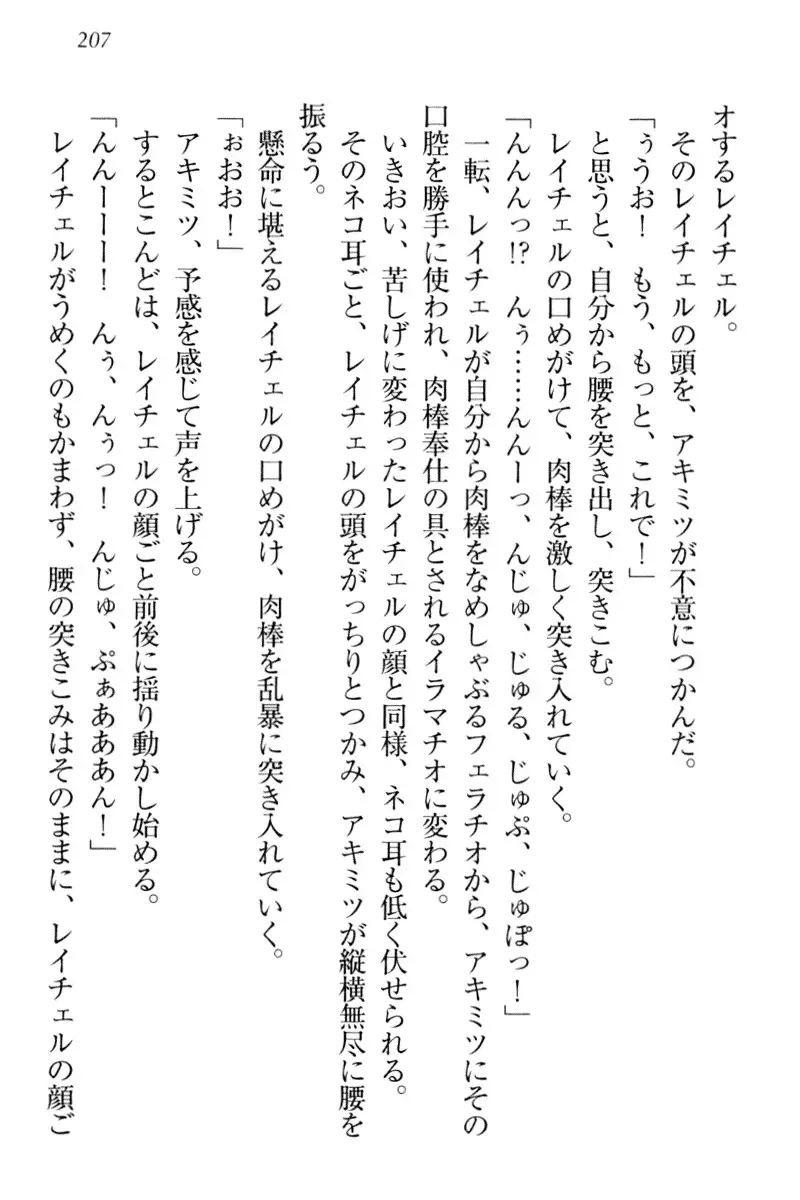 207
オするレイチェル。
そのレイチェルの頭を、アキミツが不意につかんだ。
「ぅうお！　もう、もっと、これで！」
と思うと、自分から腰を突き出し、突きこむ。
レイチェルの口めがけて、肉棒を激しく突き入れていく。
「んんんっ!?　んぅ……んんーっ、んじゅ、じゅる、じゅぷ、じゅぽっ！」
一転、レイチェルが自分から肉棒をなめしゃぶるフェラチオから、アキミツにその
口腔を勝手に使われ、肉棒奉仕の具とされるイラマチオに変わる。
いきおい、苦しげに変わったレイチェルの顔と同様、ネコ耳も低く伏せられる。
そのネコ耳ごと、レイチェルの頭をがっちりとつかみ、アキミツが縦横無尽に腰を
振るう。
懸命に堪えるレイチェルの口めがけ、肉棒を乱暴に突き入れていく。
「ぉおお！」
アキミツ、予感を感じて声を上げる。
するとこんどは、レイチェルの顔ごと前後に揺り動かし始める。
「んんーーー！　んぅ、んぅっ！　んじゅ、ぷぁあああん！」
レイチェルがうめくのもかまわず、腰の突きこみはそのままに、レイチェルの顔ご